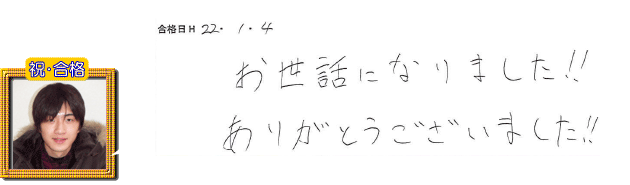 祝・合格
合格日H 22・1・4
お世話になりました!!
ありがとうございました!!